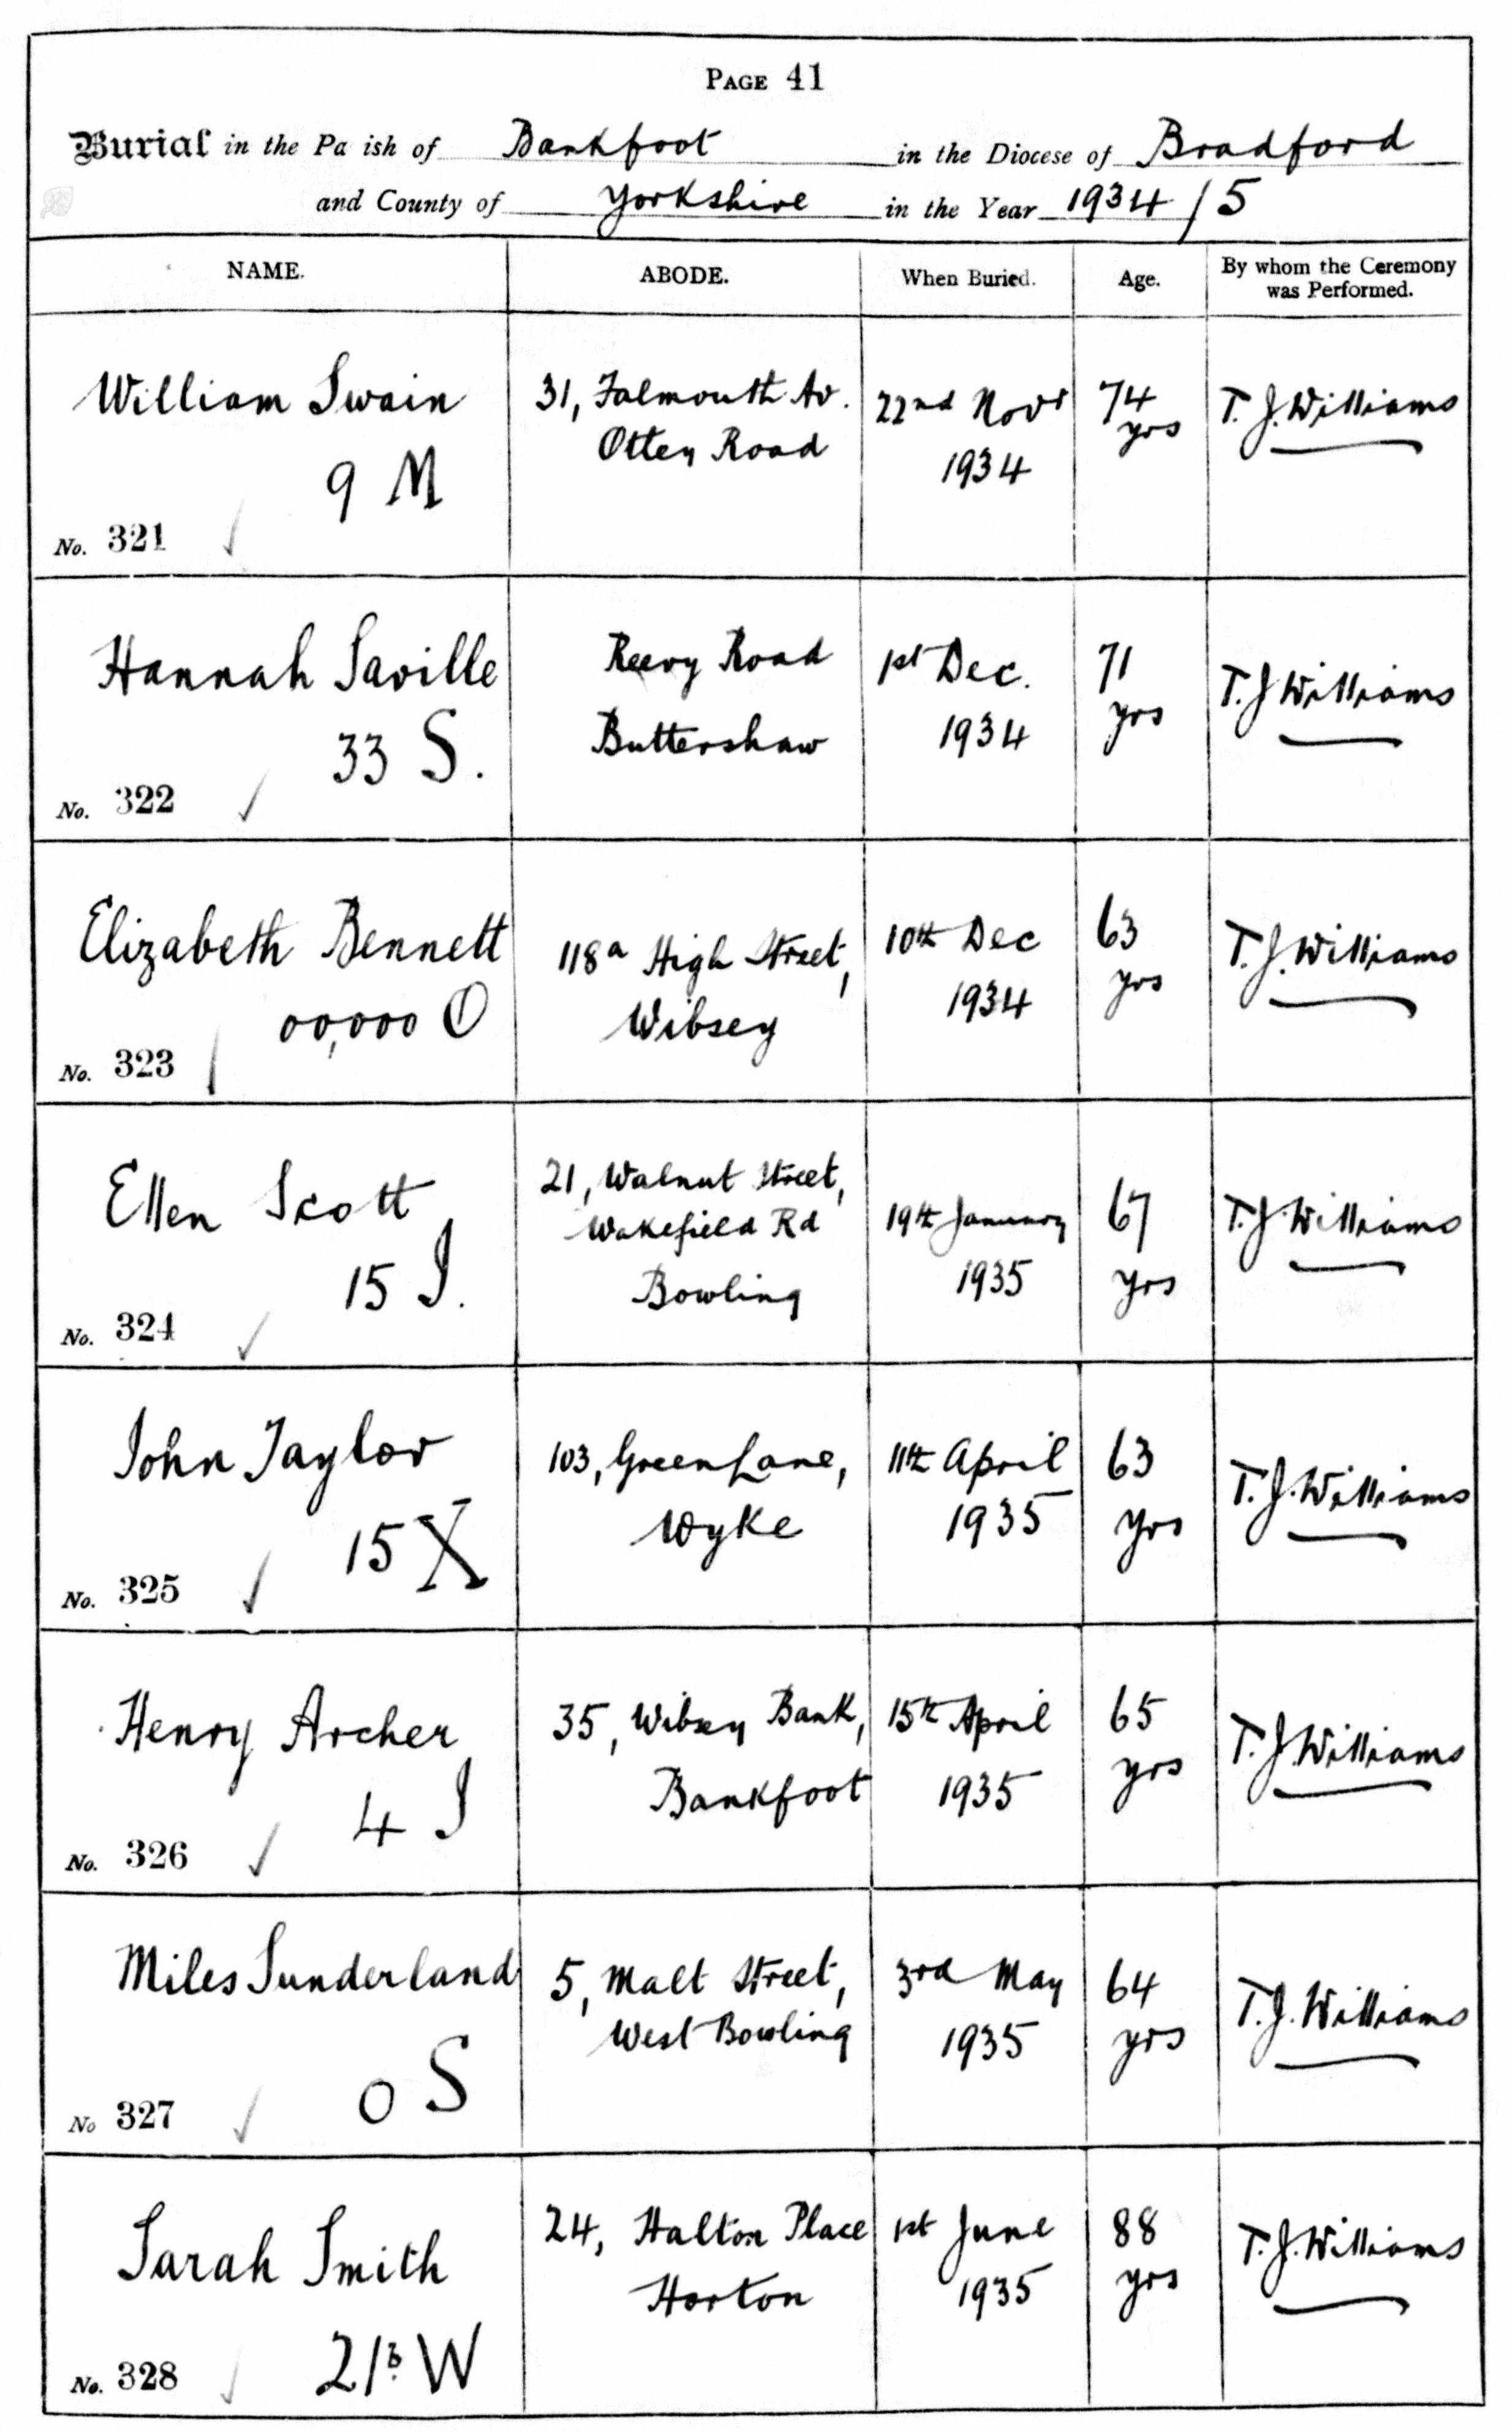 PAGE 41
Burial in the Pa ish of Bankfoot in the Diocese of Bradford
and County of Yorkshire in the Year 1934/5
NAME. ABODE. When Buried. Age. By whom the Ceremony was Performed.
William Swain
9 M
No. 321
31, Falmouth Av.
Otley Road
22nd Novr
1934
74
yrs
T. J. Williams
Hannah Saville
33 S.
No. 322
Reevy Road
Buttershaw
1st Dec.
1934
71
yrs
T. J Williams
Elizabeth Bennett
00,000 O
No. 323
118a High Street,
Wibsey
10th Dec
1934
63
yrs
T. J. Williams
Ellen Scott
15 J.
No. 324
21, Walnut Street,
Wakefield Rd
Bowling
19th January
1935
67
yrs
T. J. Williams
John Taylor
15 X
No. 325
103, Green Lane,
Wyke
11th April
1935
63
yrs
T. J. Williams
Henry Archer
4 J
No. 326
35, Wibsey Bank,
Bankfoot
15th April
1935
65
yrs
T. J. Williams
Miles Sunderland
0 S
No 327
5, Malt Street,
West Bowling
3rd May
1935
64
yrs
T. J. Williams
Sarah Smith
21B. W
No. 328
24, Halton Place
Horton
1st June
1935
88
yrs
T. J. Williams